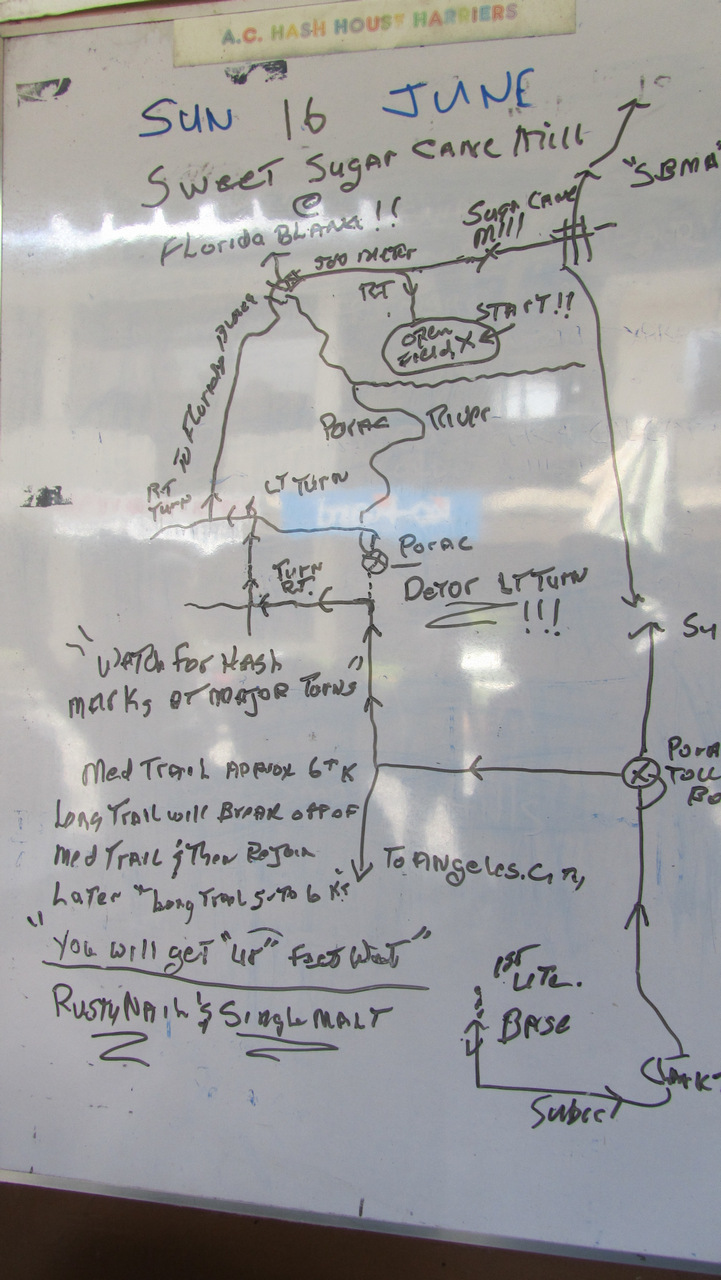 A.C. HASH HOUSE HARRIERS
SUN 16 JUNE
SWEET SUGAR CANE MILL
@
FLORIDA BLANCA!!
"SBMA"
SUGAR CANE
MILL
500 METER
RT
START!!
OPEN
FIELD X
TO FLORIDA BLANCA
PORAC RIVER
RT
TURN
LT TURN
PORAC
TURN
RT.
DETOR LT TURN
!!!
"WATCH FOR HASH
MARKS AT MAJOR TURNS"
SU
PORA
TOLL
BO
MED TRAIL APPROX 6+ K
LONG TRAIL WILL BREAK OFF OF
MED TRAIL & THEN REJOIN
LATER "LONG TRAIL 5 TO 6 K+"
TO ANGELES.CITY
"YOU WILL GET "UR" FEET WET"
RUSTY NAIL & SINGLE MALT
1ST
LITE.
BASE
SUBIC
CLARK